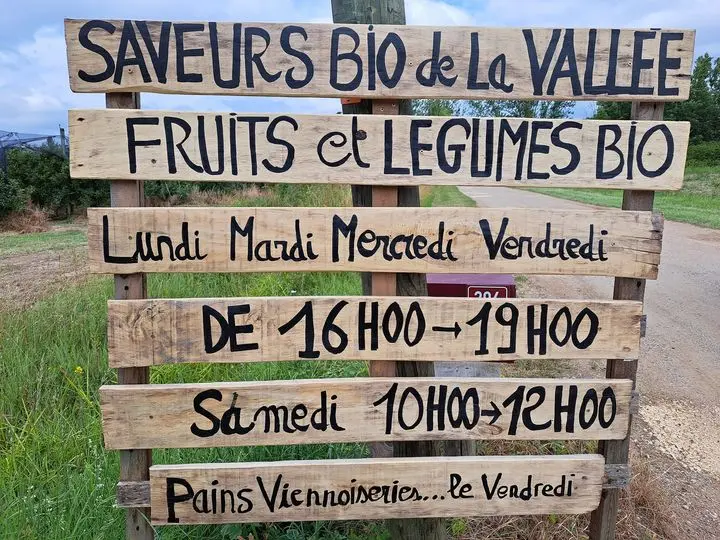 SAVEURS BiO de La VALLÉE
FRUiTS et LEGUMES BIO
Lundi Mardi Mercredi Vendredi
DE 16H00→19H00
Samedi 10H00→12H00
Pains Viennoiseries...le Vendredi